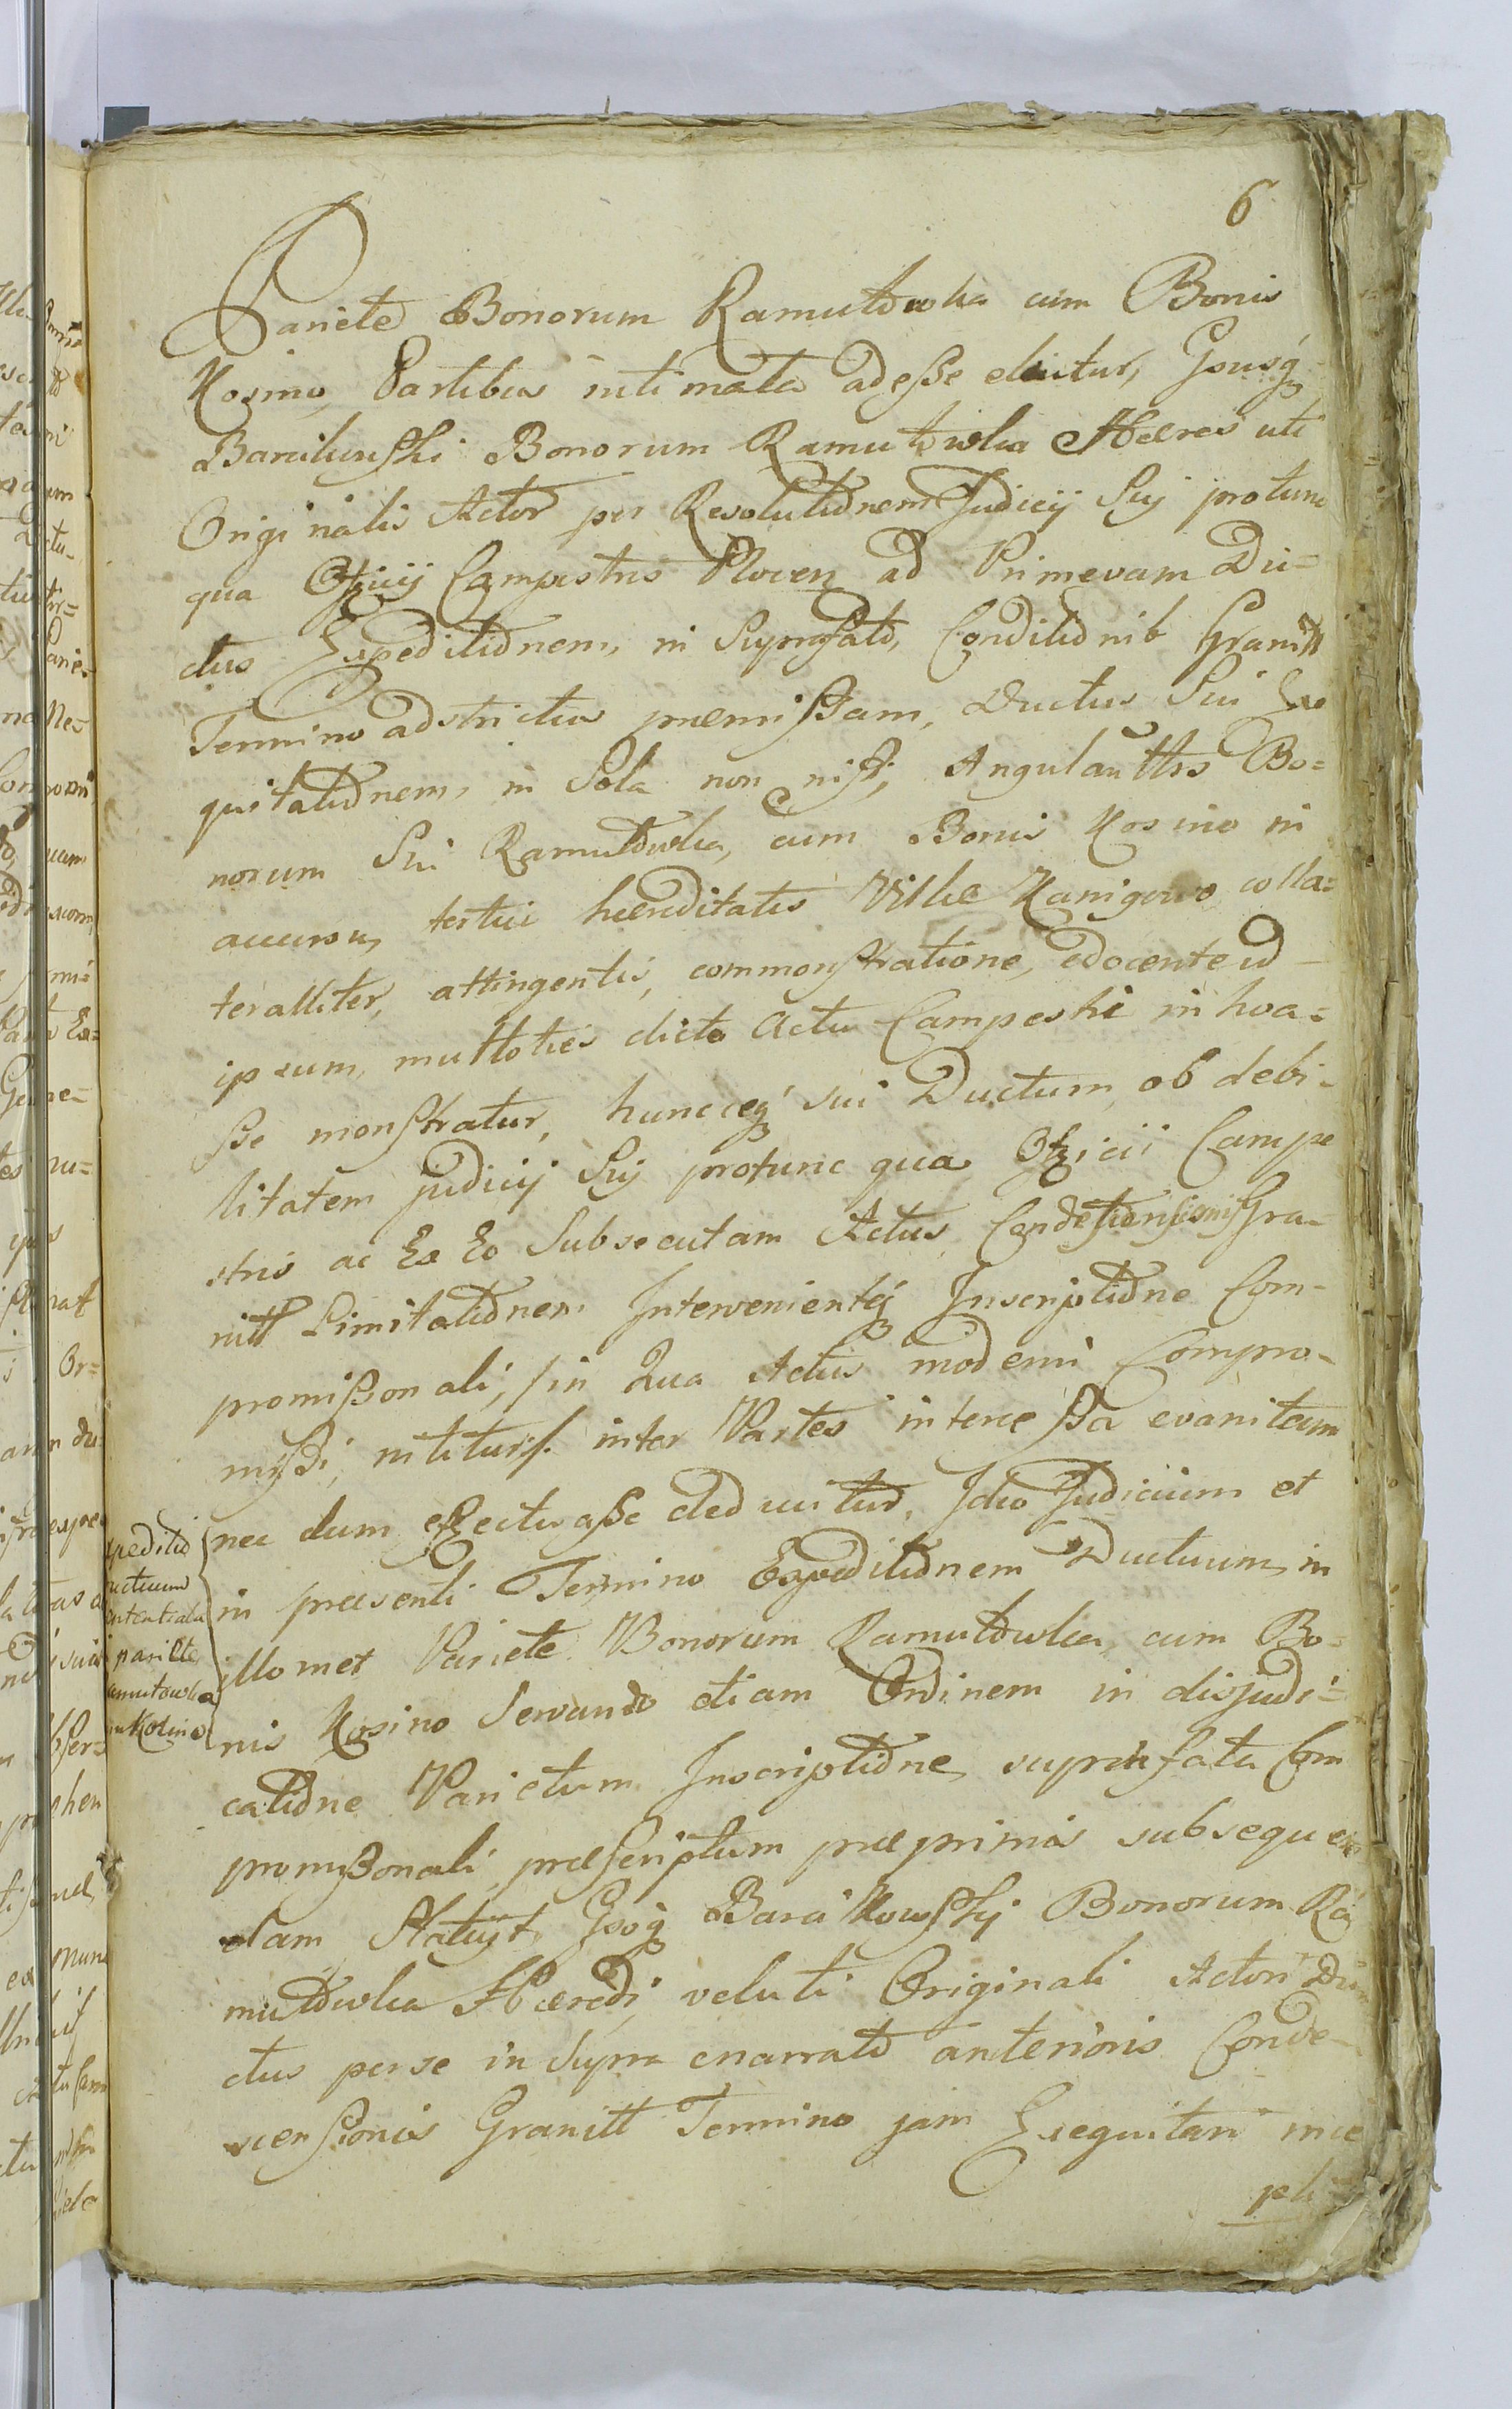 6
Pariete Bonorum Ramutowka cum Bonis
Kosino, Partibus intimata adesse dicitur, Gsusq
Barcikowski Bonorum Ramutowka Haeres uti
Originalis Actor per Resolutionem Judicij Sui protunc
qua Officij Campestris Plocen ad Primevam Du=
ctus Expeditionem, in Suprafato, Conditionib Granitt
Termino adstrictus praemissam, Ductus Sui Ex
quitationem, in Sola non nisi, Angularitts Bo=
norum Sui Ramutowka, cum Bonis Kosino in
accursu, tertiae haereditatis Villae Kanigowo colla=
teralliter, attingentis, commonstratione, edocente id
ipsum, multoties dicto Actu Campestri inhoa=
sse monstratur, huncceq sui Ductum, ob debi=
litatem judicij Sui protunc qua Officii Campe
stris ac Ex Eo Subsecutam Actus Condescensionis Gra=
nitt Limitationem Intervenienteq Inscriptione Com=
promissionali, /in Qua Actus moderni Compro=
missi, nititur/. inter Partes intercessa evanitam
nec dum effectuasse deducitur, Ideo Judicium et
in praesenti Termino Expeditionem Ductuum, in
illomet Pariete Bonorum Ramutowka, cum Bo=
nis Kosino Servando etiam Ordinem in disjudi=
catione Parietum Inscriptione suprafata Com
promissionali praescriptum praeprimis subsequen
dam Statuit, Gsoq Barcikowskij Bonorum Ra
mutowka Haeredi, veluti Originali Actori Du
ctus per se in Supra enarrato anterioris Conde=
scensionis Granitt Termino jam Exequitariince
pti
peditio
uctuum
ententiata
pariete
amutowka
m Kosino